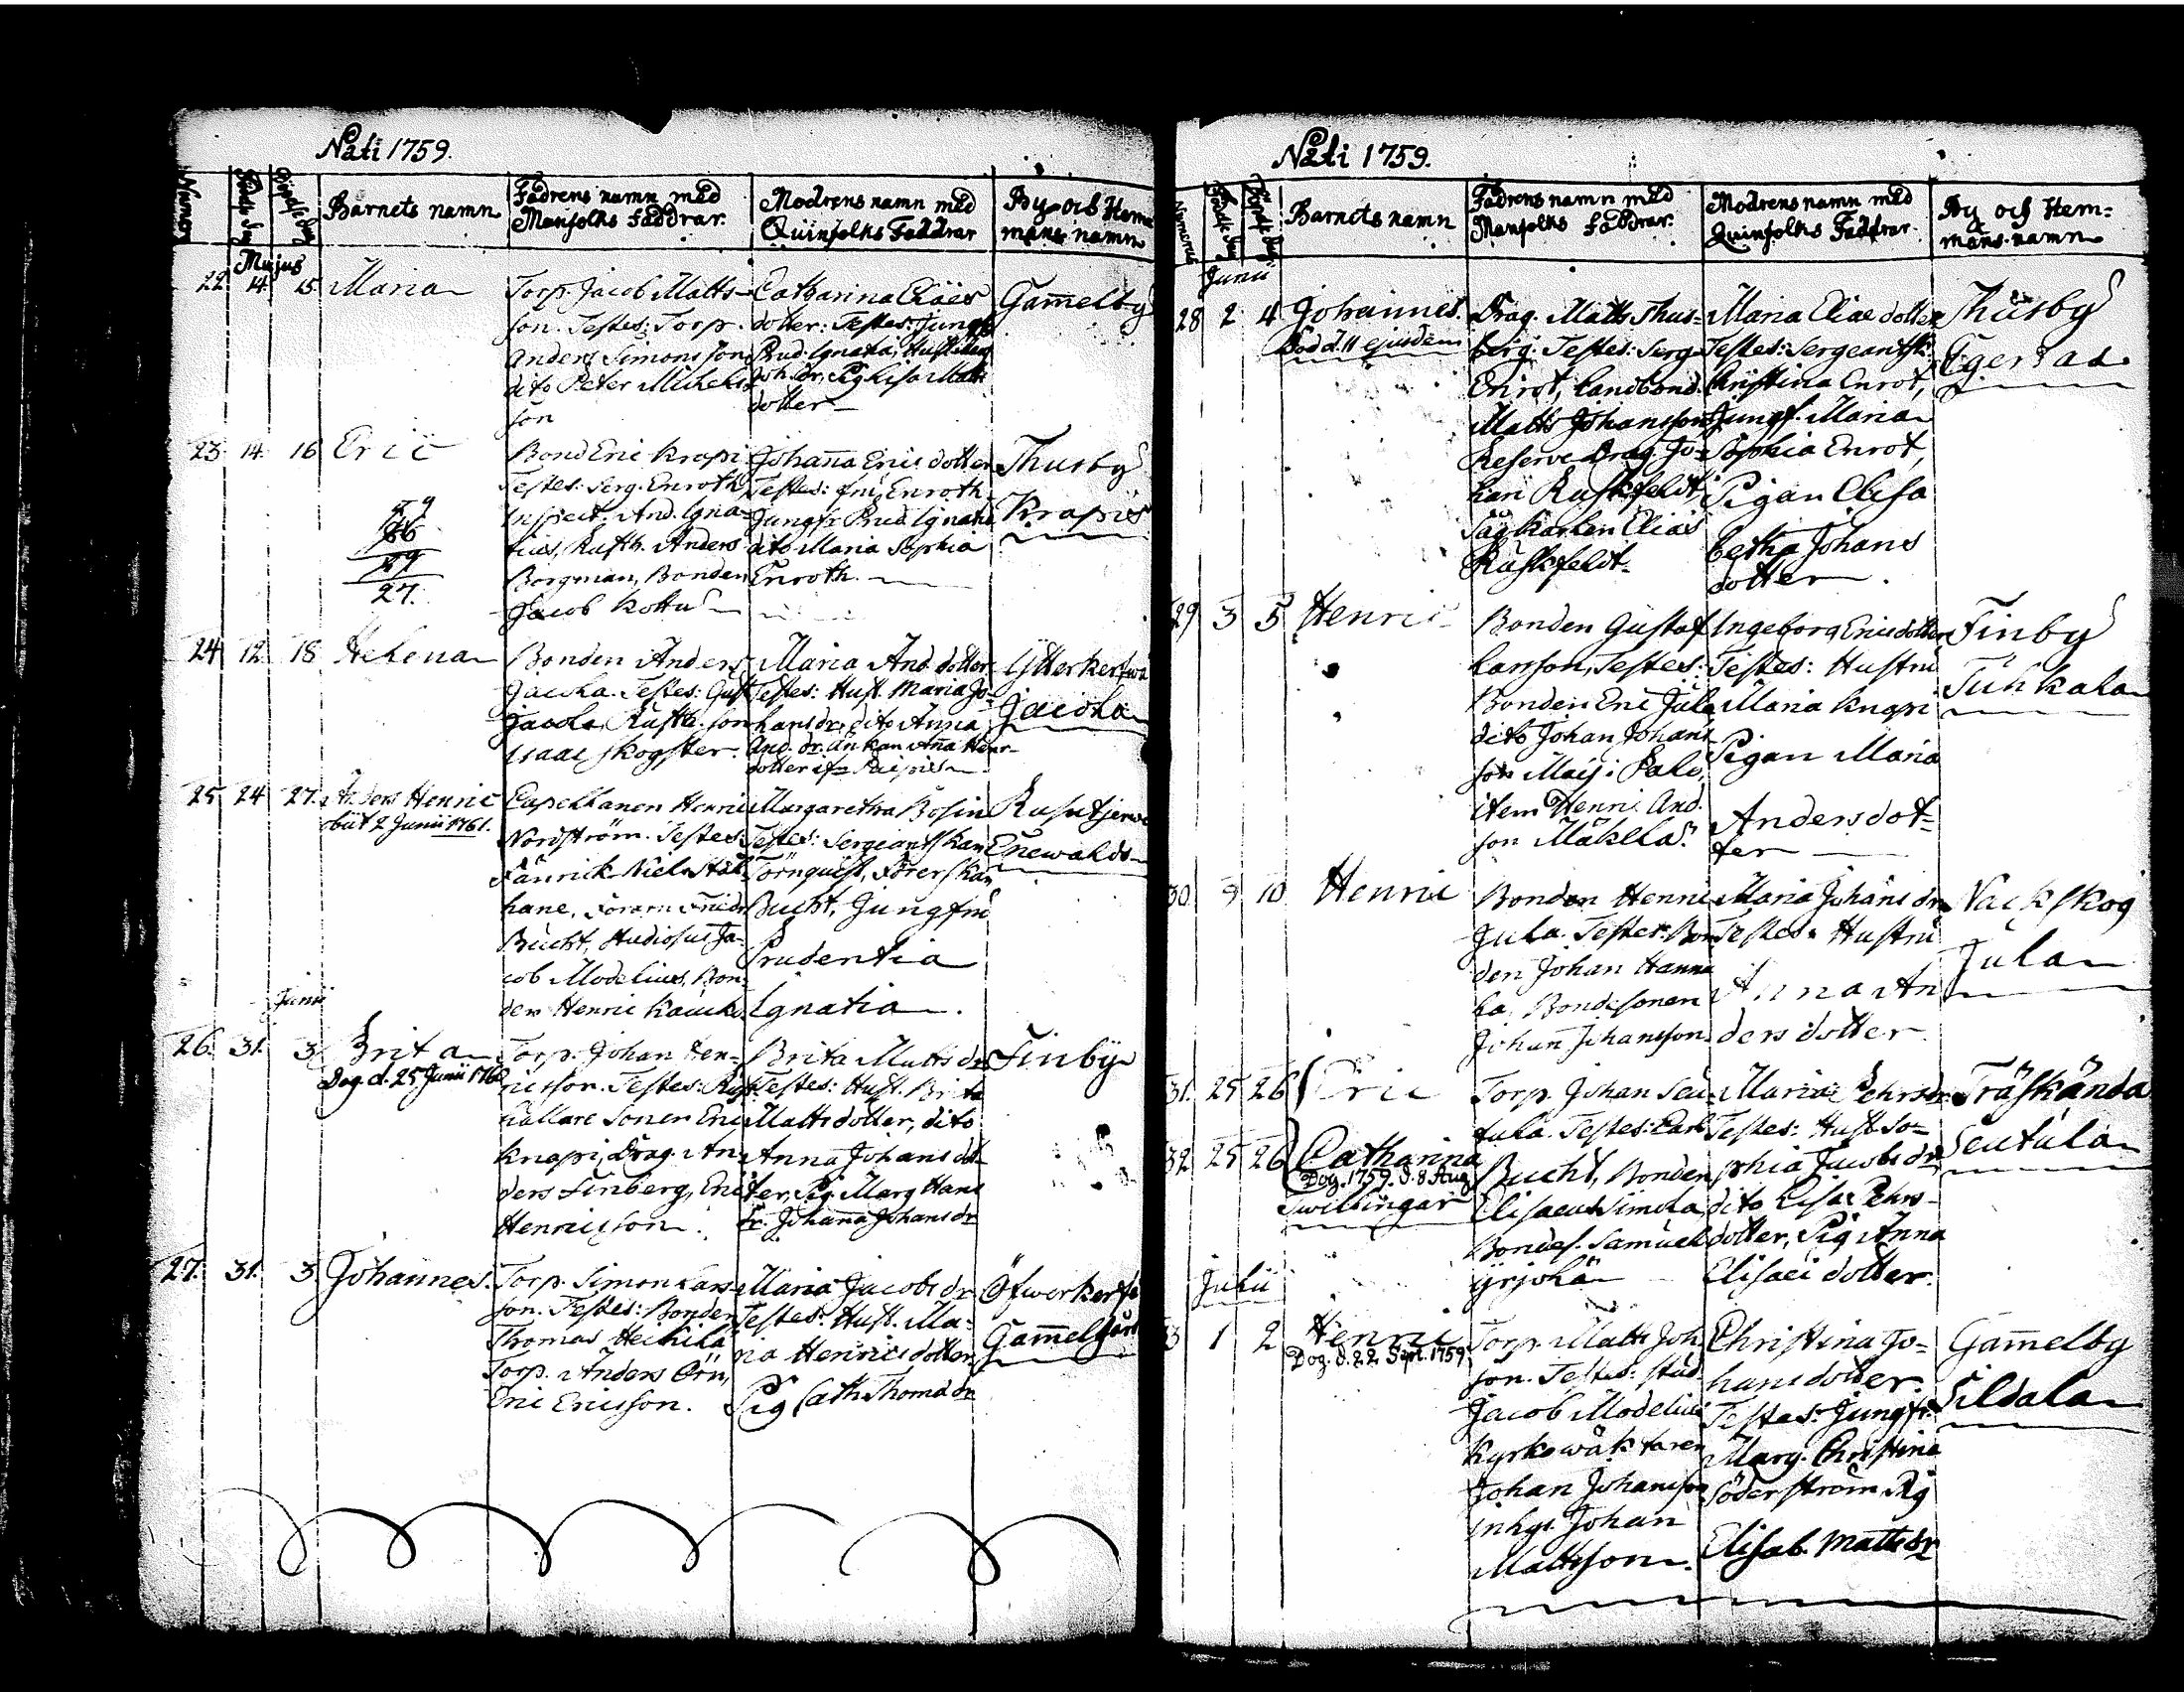 Nati 1759.
Numerus
Födde dag
Döpte dag
Barnets namn
Fadrens namn med
Manfolks faddrar.
Modrens namn med
Quinfolks Faddrar
By och Hem
mans namn
Majus
22. 14. 15 Maria
Torp. Jacob Matts-
son. Testes: Torp.
Anders Simonsson
dito Peter Michels
son
Catharina Eliæ
dotter: Testes: Jungfr
Prud. Ignatia, Hust.
Joh. dr, Pig Lisa Matts
dotter
Gamelby
23. 14. 16 Eric
59
86
27.
Bond Eric Krapi
Testes: Serg. Enroth
Inspect. And. Igna-
tius, Rusth. Anders
Borgman, Bonden
Jacob Kottu
Johana Erics dotter
Testes: fru Enroth
Jungfr Prud. Ignatia
dito Maria Sophia
Enroth.
Thusby
Krapis
24 12. 18 Helena
Bonden Anders
Jacola. Testes: Gust
Jacola, Rusth. son
Isaac Skogster.
Maria And. dotter
Testes: Hust. Maria Jo-
hans dr, dito Anna
And. dr. Änkan Ana Henr-
dotter
Ytterkerswa
Jacola
25 24 27. Anders Henric
obiit 2 Junii 1761.
Capellanen Henric
Nordström. Testes:
Fänrick Niels Stål-
hane, Föraren Friedr
Bucht, Studiosus Ja-
cob Modelius, Bon-
den Henric
Margaretha Rosin
Testes: Sergeantskan
Törnquist, Förerskan
Bucht, Jungfru
Prudentia
Ignatia.
Rusutjerwi
Enewalds
Junii
26. 31. 3 Brita
Dog. d. 25 Junii 176
Torp. Johan Hen-
ricsson. Testes: Rust
hållare Sonen Eric
Knapi, Drag. An-
ders Finberg, Eric
Henricsson.
Brita Matts dr
Testes: Hust. Brita
Matts dotter, dito
Anna Johans dot-
ter, Pig. Marg Hans
dr. Johana Johans dr
Finby
27. 31. 3 Johannes.
Torp. Simon Lars
son. Testes: Bonden
Thomas Heikilä
Torp. Anders Örn,
Eric Ericsson.
Maria Jacobs dr
Testes: Hust. Ma-
ria Henrics dotter
Pig Cath. Thomæ dr
Öfwerkerfs
Gamelgård
Nati 1759.
Numerus
Födde dag
Döpte dag
Barnets namn
Fadrens namn med
Manfolks faddrar.
Modrens namn med
Quinfolks Faddrar.
By och Hem=
mans namn
Junii
28 2 4 Johannes.
död d. 11 ejusdem
Drag. Matts Thus-
berg. Testes: Serg.
Enrot, Landbond.
Matts Johansson
Reserve Drag. Jo-
han Ruskfeldt
Sågkarlen Elias
Ruskfeldt.
Maria Eliæ dotter
Testes: Sergeantsk:
Christina Enrot,
Jungf. Maria
Sophia Enrot,
Pigan Elisa
betha Johans
dotter.
Thusby
29 3 5 Henric
Bonden Gustaf
Larsson, Testes:
Bonden Eric Jula
dito Johan Johans
son
item Henric And.
son Mäkelä.
Ingeborg Ericsdotter
Testes: Hustru
Maria Knapi
Pigan Maria
Andersdot=
ter
Finby
Tuhkala
30 9 10 Henric
Bonden Henric
Jula. Testes: Bon
den Johan Hannu
la, Bondesonen
Johan Johansson
Maria Johans dr
Testes: Hustru
Anna An
ders dotter.
Nackskog
Jula
31. 25 26 Eric
32 25 26 Catharina
Dog. 1759. d. 8 Aug.
Twillingar
Torp. Johan Seu-
tula. Testes: Carl
Bucht, Bonden
Elisaeus Simola,
Bondes. Samuel
Yrjölä
Maria Pehrs dr.
Testes: Hust. So-
phia Jacobs dr
dito Lisa Pehrs-
dotter, Pig Anna
Elisæi dotter.
Träskända
Seutula
Julii
3 1 2 Henric
Dog. d. 22 Sept. 1759
Torp. Matts Joh.
son. Testes: Stud.
Jacob Modelius
Kyrkowäktaren
Johan Johansson
inhys. Johan
Mattsson.
Christina Jo=
hans dotter.
Testes: Jungfr.
Marg. Christina
Söderström, Pig
Elisab. Matts dr
Gamelby
Sildala